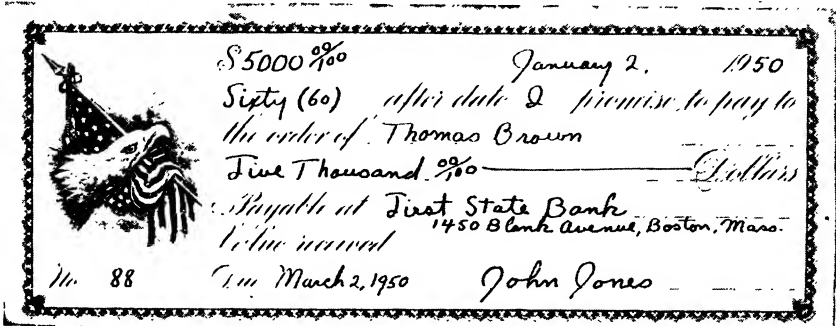 $5000 00/100 January 2, 1950
Sixty (60) after date I promise to pay to
the order of Thomas Brown
Five Thousand 00/100 Dollars
Payable at First State Bank
1450 Blank Avenue, Boston, Mass.
Value received
No. 88 Due March 2, 1950 John Jones